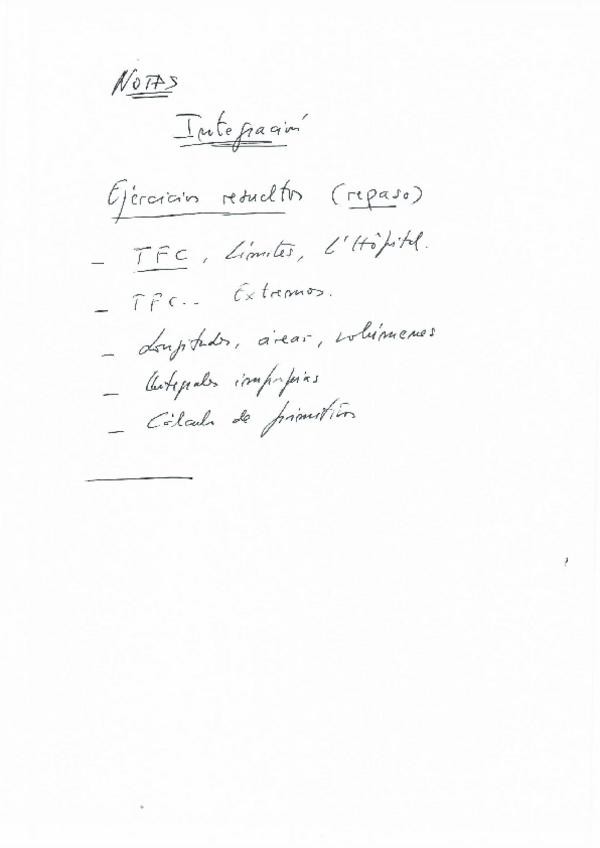 NOTAS
Integración
Ejercicios resueltos (repaso)
- TFC, Límites, L'Hôpital.
- TFC.. Extremos.
- Longitudes, áreas, volúmenes
- Integrales impropias
- Cálculo de primitivas